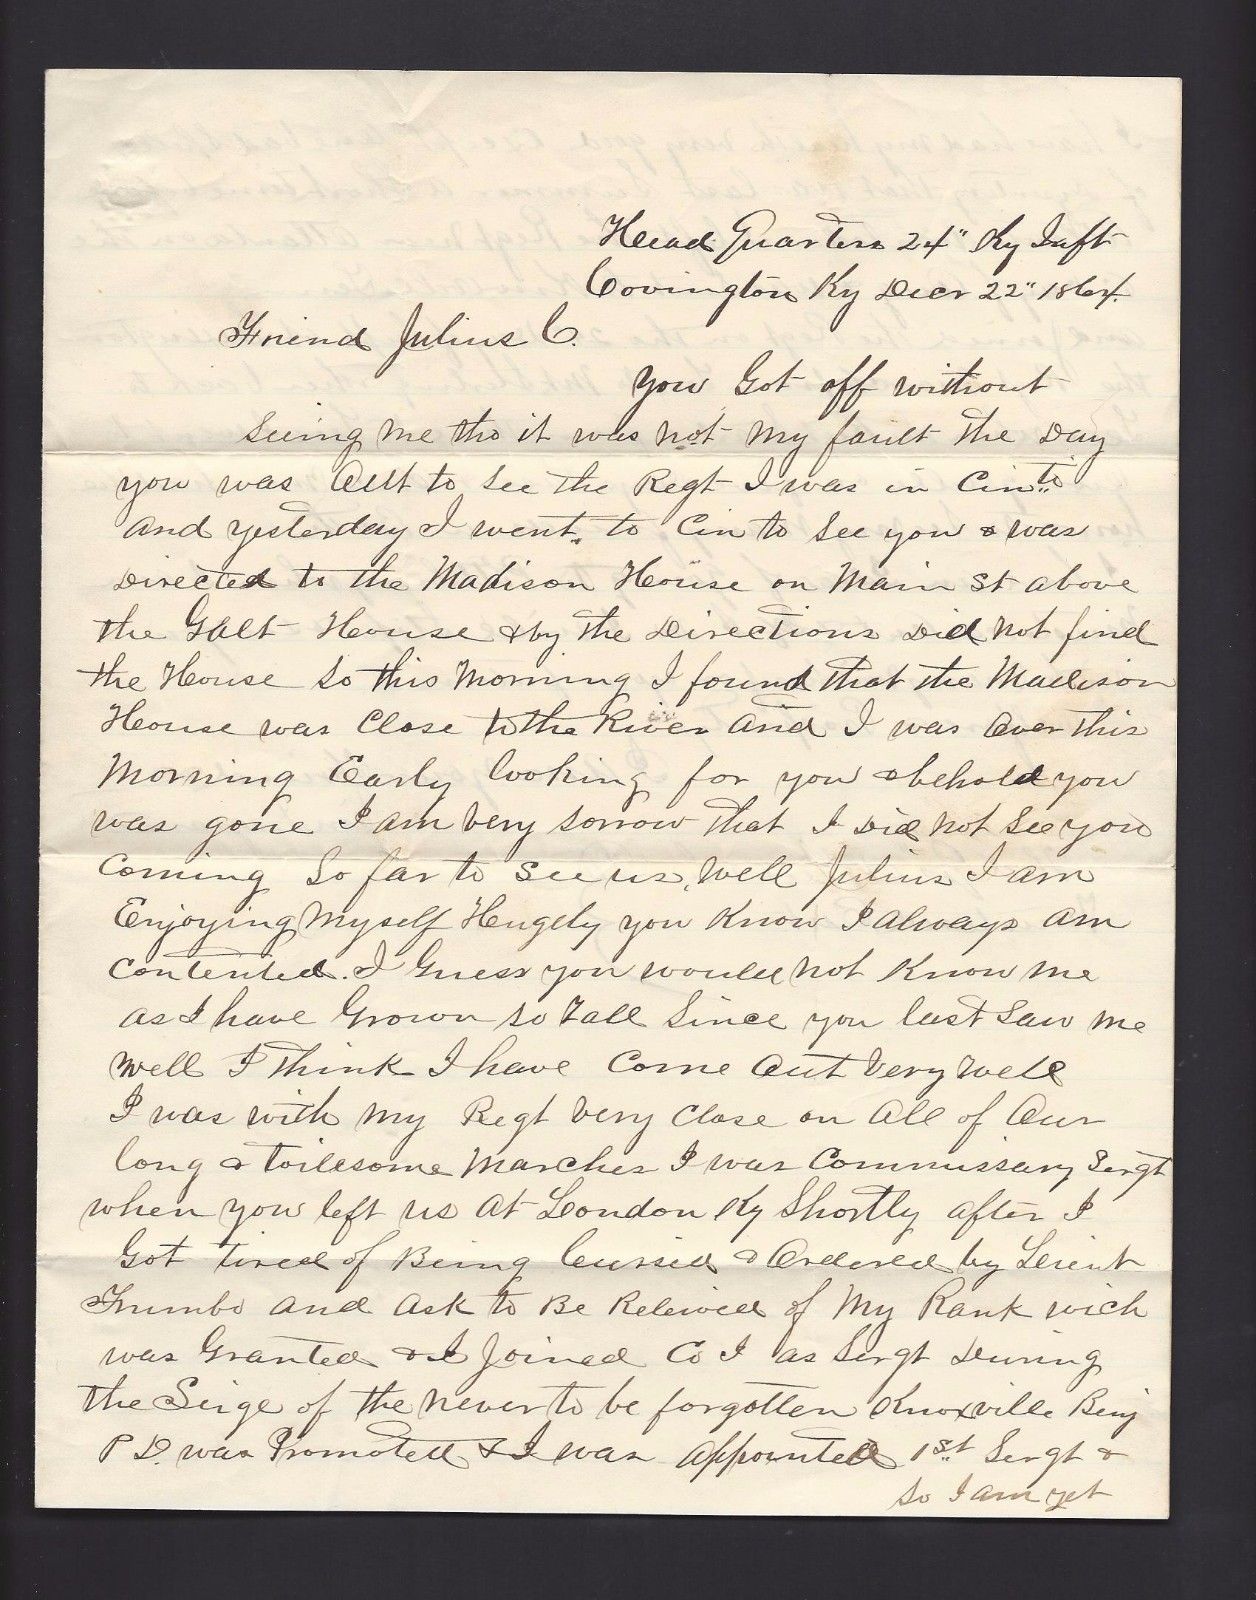 Head Quarters 24" Ky Inft
Covington Ky Decr 22" 1864.
Friend Julius C.
You Got off without
Seeing me tho it was not my fault The Day
you was Out to See the Regt I was in Cinti
and yesterday I went to Cin to See you & was
Directed to the Madison House on Main St above
the Galt House & by the Directions Did Not find
the House So this Morning I found that the Madison
House was Close to the River and I was Over this
Morning Early looking for you & behold you
was gone I am very sorrow that I Did Not See you
Coming So far to See us, Well Julius I am
Enjoying Myself Hugely you Know I always am
Contented. I Guess you would not Know me
as I have Grown so Tall Since you last Saw me
Well I Think I have Come Out Very Well
I was with my Regt Very Close on All of Our
long & toilesome Marches I was Commissary Sergt
when you left us at London Ky Shortly after I
Got tired of Being Cursed & Ordered by Lieut
Trumbo and ask to Be Releived of My Rank wich
was Granted & I Joined Co I as Sergt During
the Seige of the never to be forgotten Knoxville Being
P D. was Promoted & I was appointed 1st Sergt &
so I am yet